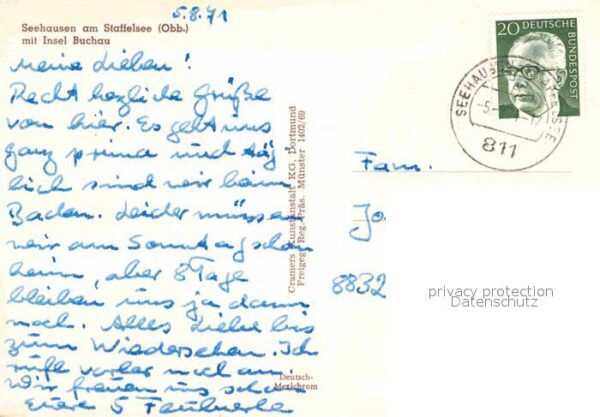 5.8.71
Seehausen am Staffelsee (Obb.)
mit Insel Buchau
Meine Lieben!
Recht herzliche Grüße
von hier. Es geht uns
ganz prima und täg
lich sind wir beim
Baden. Leider müssen
wir am Sonntag schon
heim, aber 8 Tage
bleiben uns ja dann
noch. Alles Liebe bis
zum Wiedersehen. Ich
rufe vorher noch an.
Wir freuen uns schon
Eure 5
Cramers Kunstanstalt KG, Dortmund
Freigeg. Reg.-Präs. Münster 1402/69
Deutsch-
Mexichrom
20 DEUTSCHE
BUNDESPOST
811
Fam.
8832
privacy protection
Datenschutz